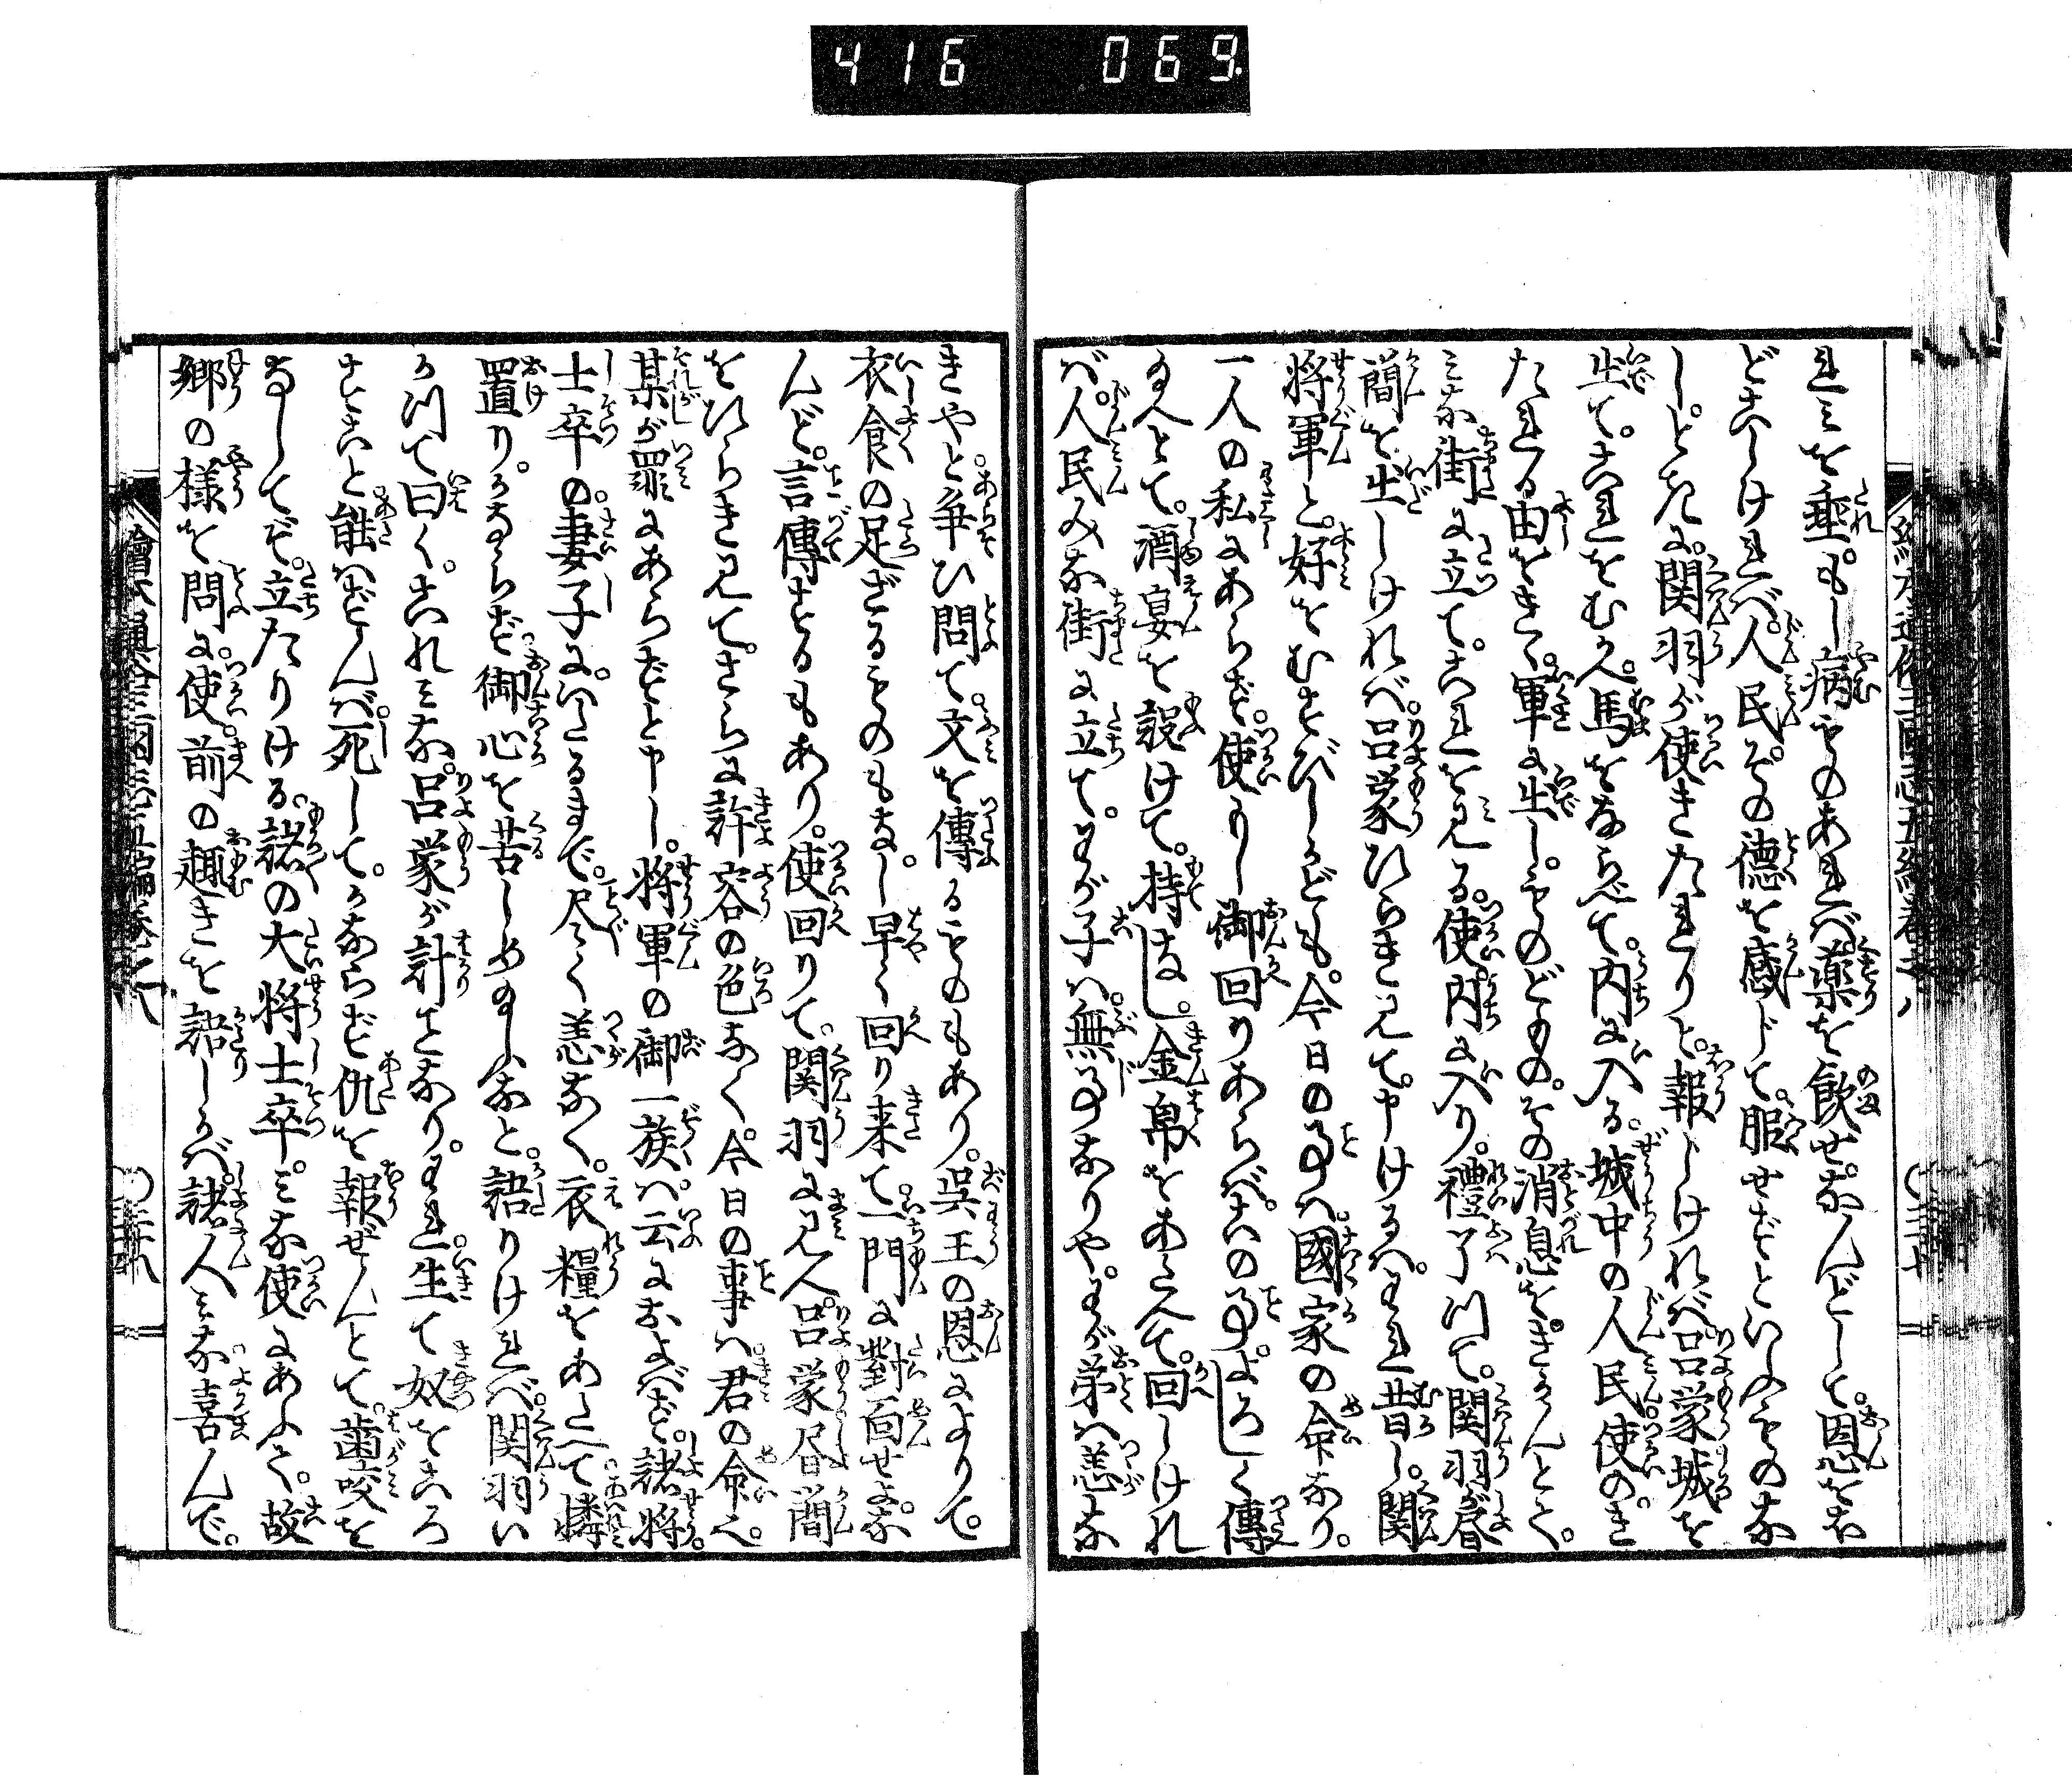 416 069.
れみを垂。もし病ものあれば薬を飲せ。なんどして。恩をほ
どこしければ。人民。その徳を感じて。服せずといふものな
し。ときに。関羽が使きたれりと。報じければ。呂蒙城を
出て。これをむかへ。馬をならべて。内に入る。城中の人民使のき
たれる由をきゝ。軍に出し。ものども。その消息をきかんとて。
みな街に立て。これを見る。使内に入り。禮了つて。関羽が書
簡を出しければ。呂蒙ひらき見て。申けるは。われ昔し。関
将軍と。好をむすびしかども。今日の事は。國家の命なり。
一人の私にあらず。使もし御回りあらば。この事。よろしく傳
給へとて。酒宴を設けて。持なし。金帛をあたへて。回しけれ
ば。人民みな街に立て。わが子は無事なりや。わが弟は恙な
きやと。争ひ問て。文を傳るものもあり。呉王の恩によりて。
衣食の足ざるものもなし。早く回り来て。一門に對面せよな
んど。言傳するもあり。使回りて。関羽に見へ。呂蒙が書簡
をひらき見て。さらに許容の色なく。今日の事は。君の命也。
某が罪にあらずと申し。将軍の御一族は。云におよばず。諸将。
士卒の。妻子に。いたるまで。尽く恙なく。衣糧をあたへて。憐
置り。かならず御心を苦しめ給ふなと。語りければ。関羽い
かつて曰く。これみな。呂蒙が計となり。われ生て奴をころ
すこと能はずんば。死して。かならず仇を報ぜんとて。歯咬を
なしてぞ。立たりける。諸の大将士卒。みな使にあふて。故
郷の様を問に。使。前の趣きを語しかば。諸人みな喜んで。